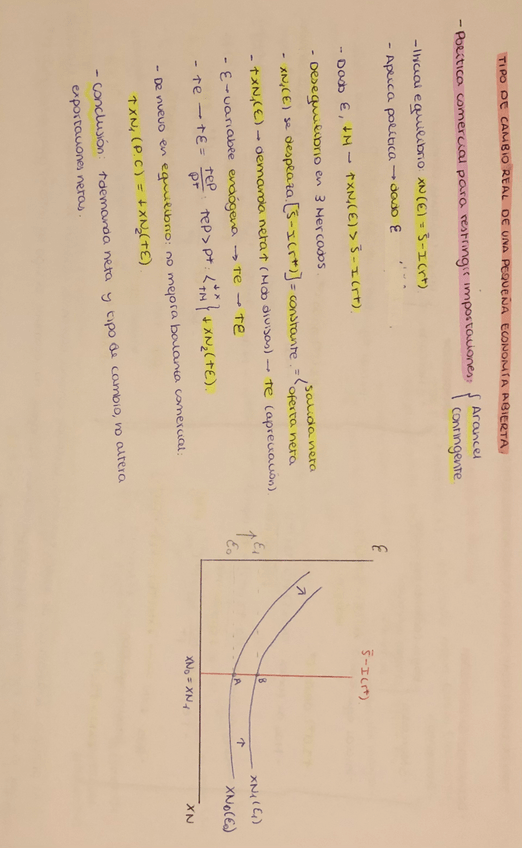 TIPO DE CAMBIO REAL DE UNA PEQUEÑA ECONOMÍA ABIERTA
- Política comercial para restringir importaciones { Arancel
Contingente
- Inicial equilibrio XN(Ɛ) = S̄ - I(r*)
- Aplica política → dado Ɛ
- Dado Ɛ, ↓M → ↑XN₁(Ɛ) > S̄ - I(r*).
- Desequilibrio en 3 Mercados
- XN₁(Ɛ) se desplaza. [S̄ - I(r*)] = constante. = { salida neta
oferta neta
- ↑XN₁(Ɛ) → demanda neta ↑ (Mdo divisas) → ↑e (apreciación)
- Ɛ → variable endógena → ↑e → ↑Ɛ
- ↑e → ↑Ɛ = ↑eP / P* : ↑eP > P* : { ↓X
↑M } ↓XN₂(↑Ɛ).
- De nuevo en equilibrio: no mejora balanza comercial:
↑XN₁(P.C) = ↓XN₂(↑Ɛ)
- Conclusión: ↑demanda neta y tipo de cambio, no altera
exportaciones netas.
Ɛ
S̄ - I(r*)
Ɛ₁
↑
Ɛ₀
B
A
XN₁(Ɛ₁)
XN₀(Ɛ₀)
XN₀ = XN₁
XN